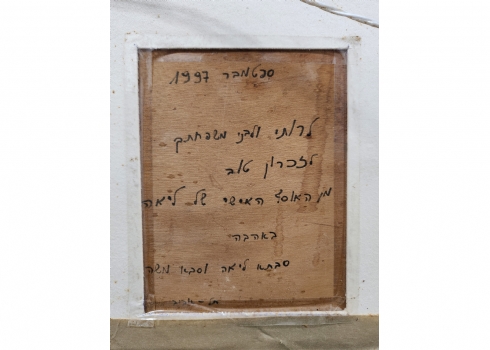 ספטמבר 1997
לרותי ולבני משפחתך
לזכרון טוב
מן האוסף האישי של ליאה
באהבה
סבתא ליאה וסבא משה
תל-אביב